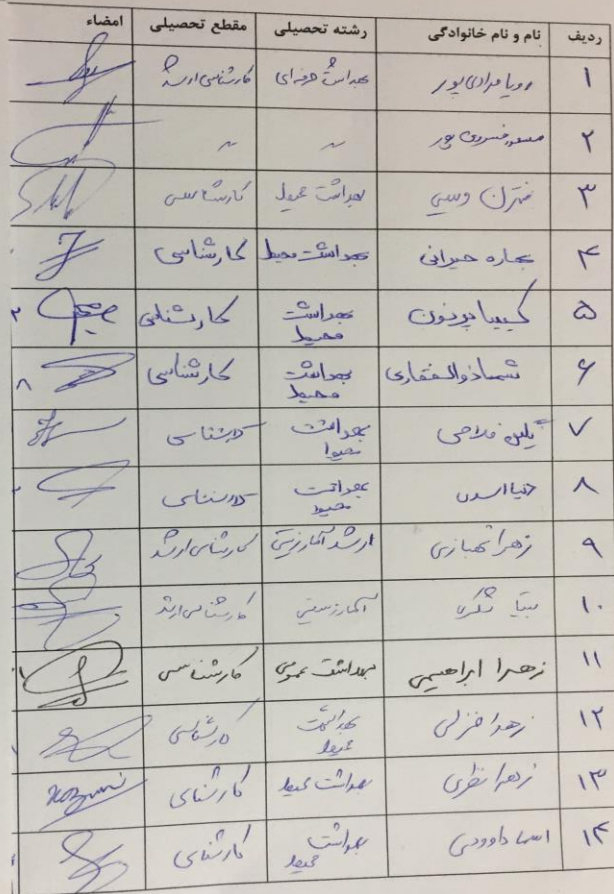 ردیف نام و نام خانوادگی رشته تحصیلی مقطع تحصیلی امضاء
۱ رویا مرادی پور بهداشت حرفه ای کارشناسی ارشد
۲ پور 〃 〃
۳ ویسی بهداشت محیط کارشناسی
۴ بهاره حیرانی بهداشت محیط کارشناسی
۵ کیمیا پرنون بهداشت محیط کارشناسی
۶ شهناز ذوالفقاری بهداشت محیط کارشناسی
۷ فلاحی بهداشت محیط کارشناسی
۸ بهداشت محیط کارشناسی
۹ زهرا شهبازی ارشد آمار زیستی کارشناسی ارشد
۱۰ بیتا شکری آمار زیستی کارشناسی ارشد
۱۱ زهرا ابراهیمی بهداشت عمومی کارشناسی
۱۲ زهرا خزلی بهداشت محیط کارشناسی
۱۳ زهرا نظری بهداشت محیط کارشناسی
۱۴ اسما داوودی بهداشت محیط کارشناسی